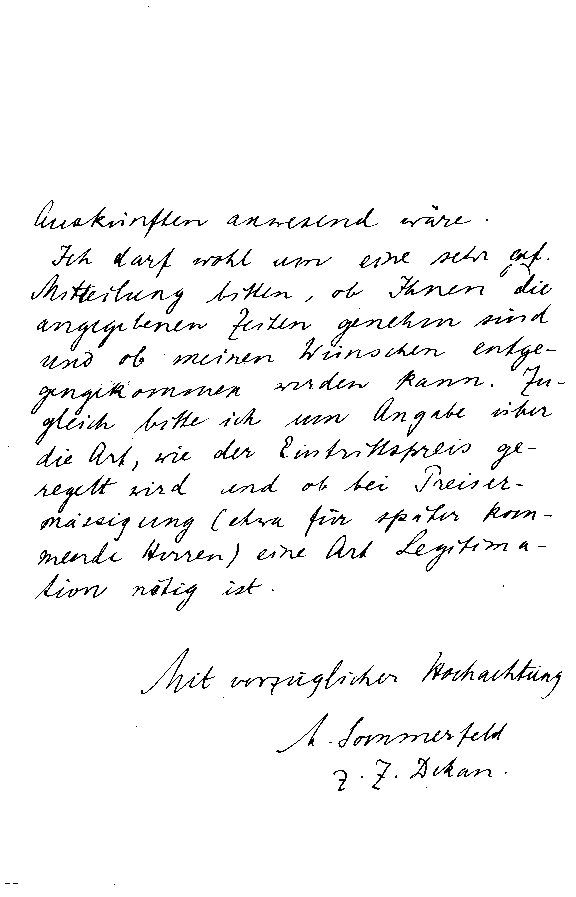 Auskünften anwesend wäre.
Ich darf wohl um eine sehr gef.
Mitteilung bitten, ob Ihnen die
angegebenen Zeiten genehm sind
und ob meinen Wünschen entge-
gengekommen werden kann. Zu-
gleich bitte ich um Angabe über
die Art, wie der Eintrittspreis ge-
regelt wird und ob bei Preiser-
mässigung (etwa für später kom-
mende Herren) eine Art Legitima-
tion nötig ist.
Mit vorzüglicher Hochachtung
A. Sommerfeld
z. Z. Dekan.